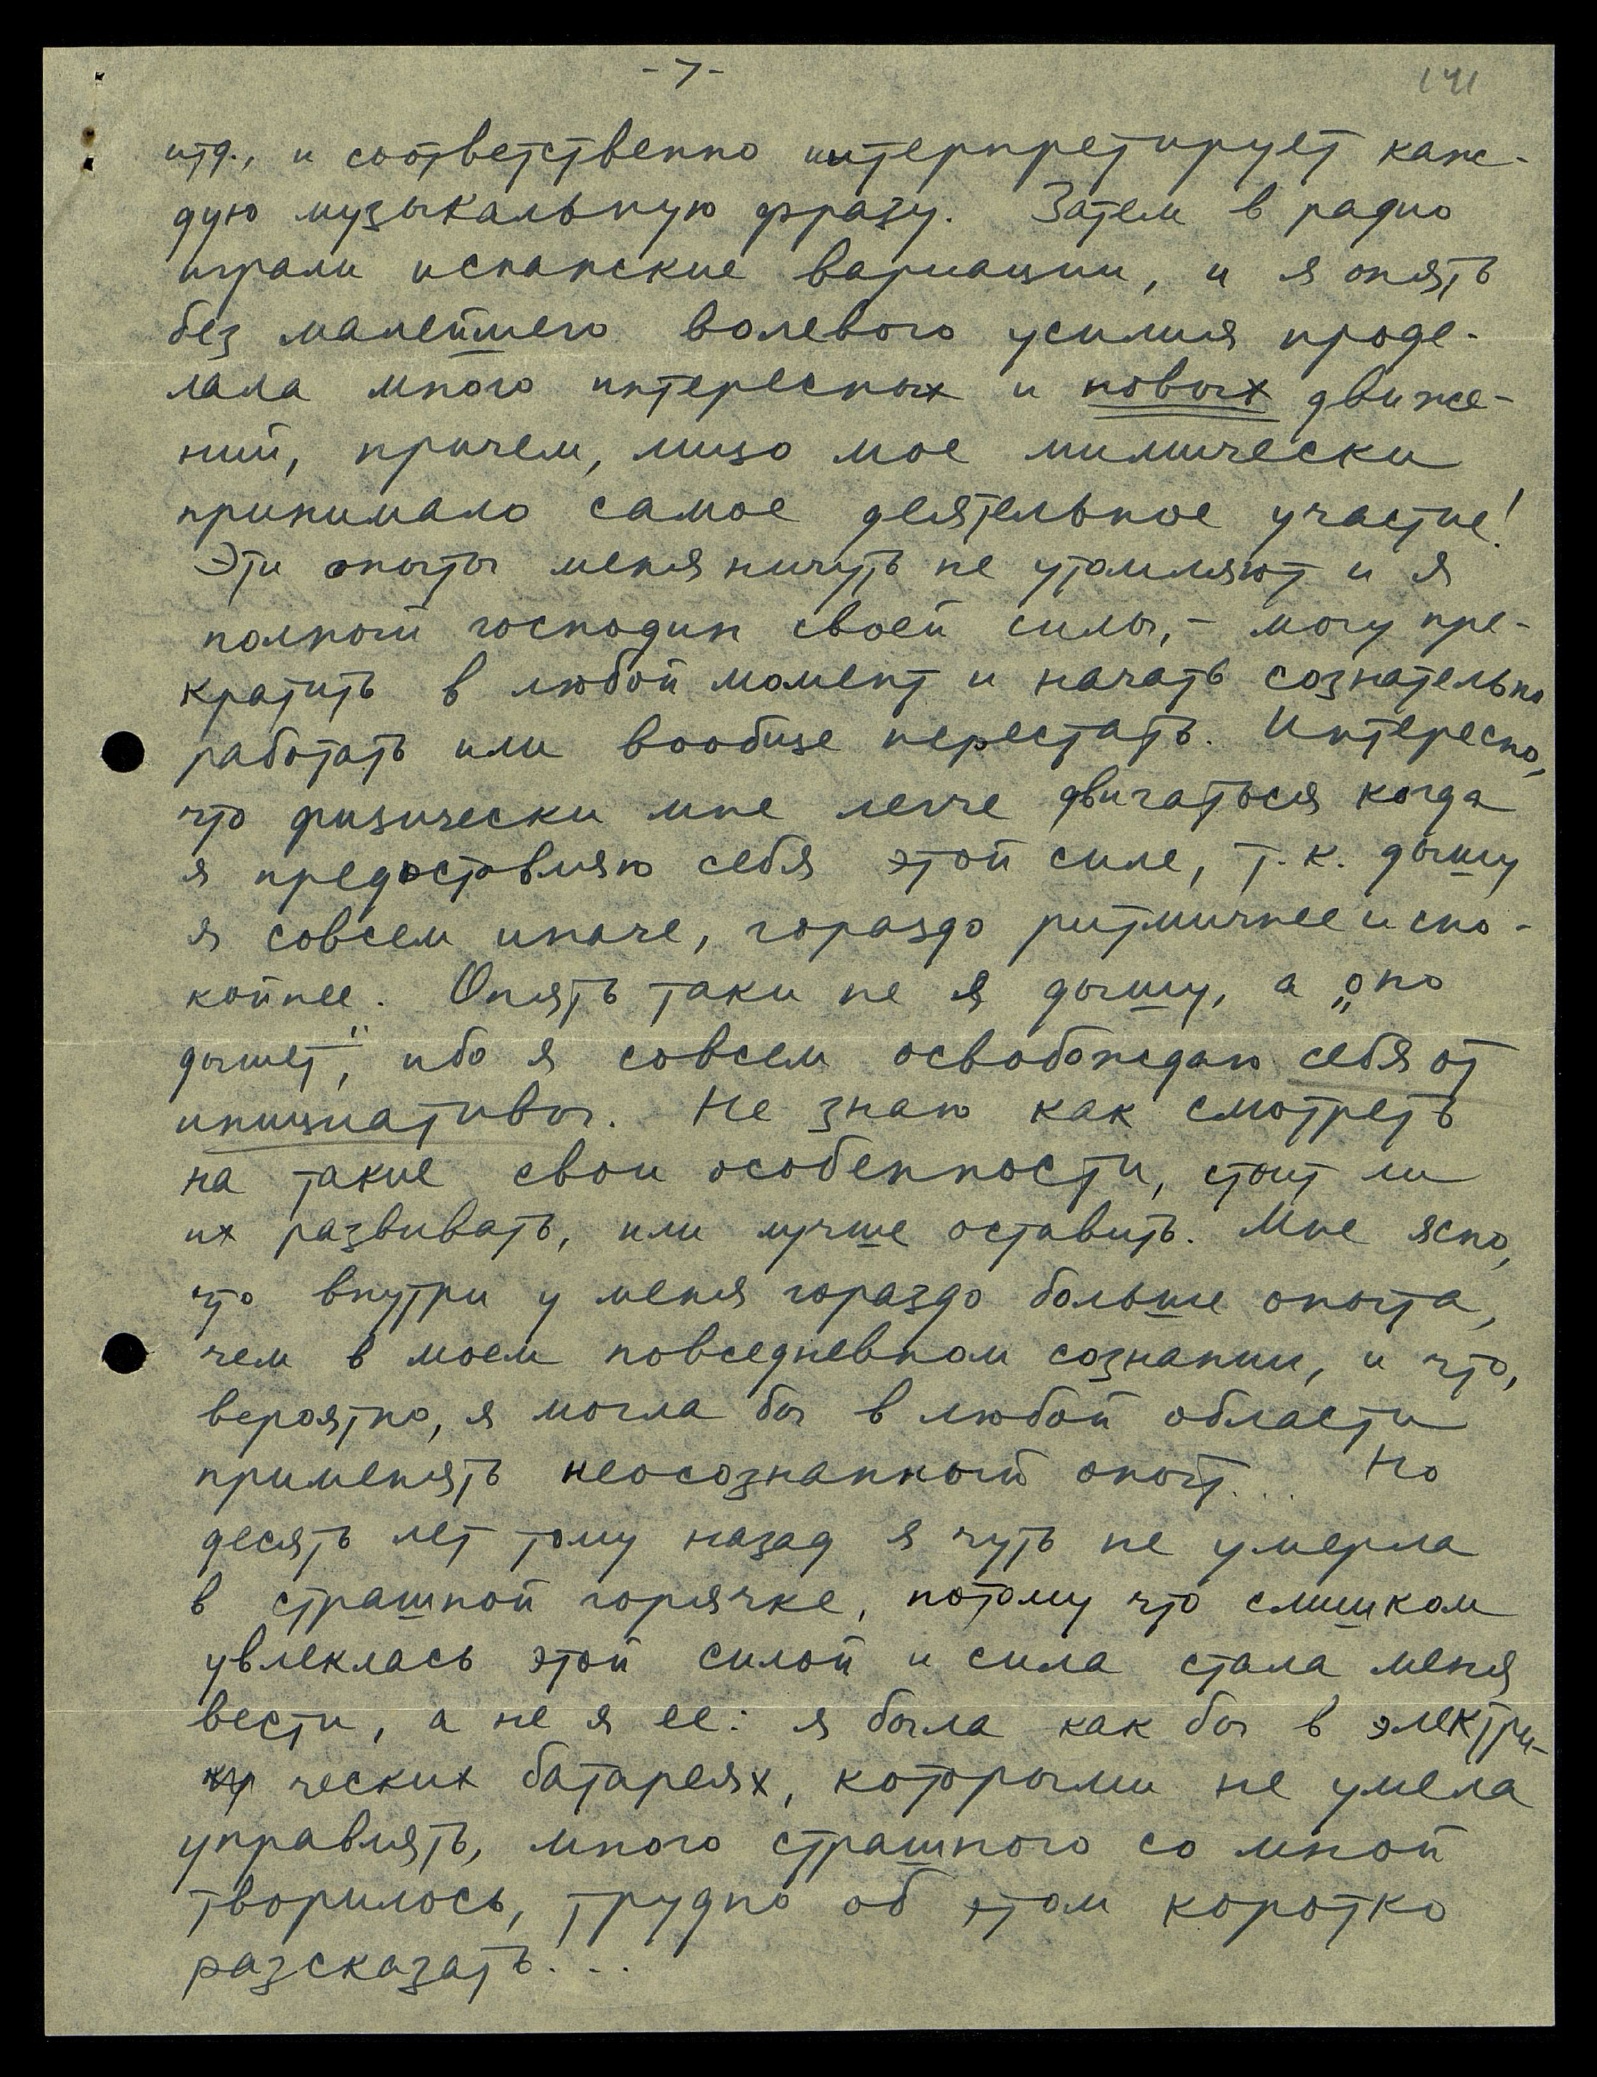 -7-
141
итд., и соответственно интерпретирует каж-
дую музыкальную фразу. Затем в радио
играли испанские вариации, и я опять
без малейшего волевого усилия проде-
лала много интересных и новых движе-
ний, причем, лицо мое мимически
принимало самое деятельное участие!
Эти опыты меня ничуть не утомляют и я
полный господин своей силы, - могу пре-
кратить в любой момент и начать сознательно
работать или вообще перестать. Интересно,
что физически мне легче двигаться когда
я предоставляю себя этой силе, т.к. дышу
я совсем иначе, гораздо ритмичнее и спо-
койнее. Опять таки не я дышу, а „оно
дышет", ибо я совсем освобождаю себя от
инициативы. Не знаю как смотреть
на такие свои особенности, стоит ли
их развивать, или лучше оставить. Мне ясно,
что внутри у меня гораздо больше опыта,
чем в моем повседневном сознании, и что,
вероятно, я могла бы в любой области
применять неосознанный опыт... Но
десять лет тому назад я чуть не умерла
в страшной горячке, потому что слишком
увлеклась этой силой и сила стала меня
вести, а не я ее: я была как бы в электри-
ческих батареях, которыми не умела
управлять, много страшного со мной
творилось, трудно об этом коротко
разсказать...